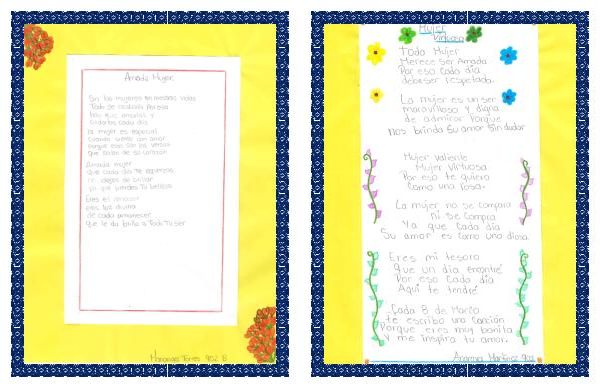 Amada Mujer
Sin las mujeres en nuestras vidas
Todo se acabaria por eso
hay que amarlas y
cuidarlas cada día
la mujer es especial
cuando siente con amor
porque esos son los versos
que salen de su corazón
Amada mujer
que cada día te esfuerzas
no dejes de brillar
ni que pierdas Tu belleza
Eres el amanecer
eres luz divina
de cada amanecer
que le da brillo a Todo Tu ser
Torres 902 B
Mujer
Virtuosa
Toda Mujer
Merece ser Amada
Por eso Cada día
debe ser respetada.
La mujer es un ser
maravilloso y digna
de admirar Porque
nos brinda su amor sin dudar
Mujer valiente
Mujer Virtuosa
Por eso te quiero
Como una rosa.
La mujer no se compara
ni se compra
Ya que Cada día
Su amor es como una diosa.
Eres mi tesoro
que un día encontré
Por eso Cada día
Aquí te tendré
Cada 8 de Marzo
te escribo una Canción
Porque eres muy bonita
y me inspira tu amor.
Martinez 902